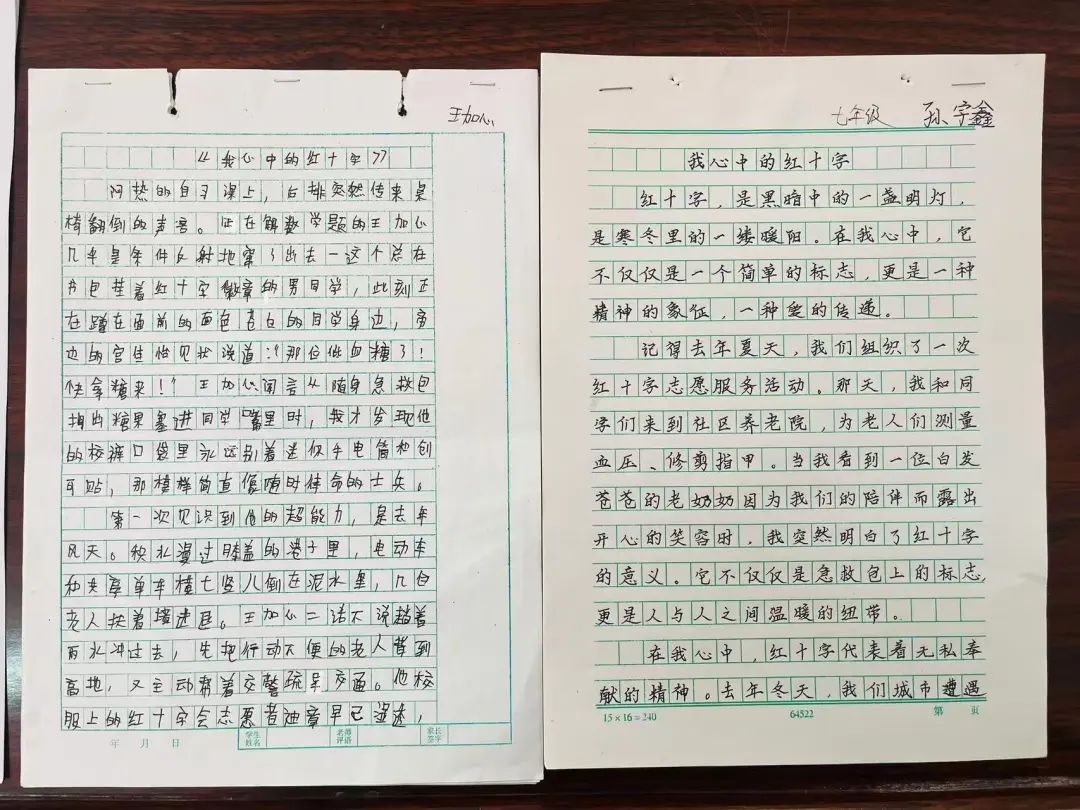 王加心
《我心中的红十字》
闷热的自习课上，后排突然传来桌
椅翻倒的声音。正在解数学题的王加心
几乎是条件反射地窜了出去一这个总在
书包挂着红十字徽章的男同学，此刻正
在蹲在面前的面色苍白的同学身边，旁
边的宫佳怡见状说道："那位低血糖了！
快拿糖来！"王加心闻言从随身急救包
掏出糖果塞进同学嘴里时，我才发现他
的校裤口袋里永远别着迷你手电筒和创
可贴，那模样简直像随时待命的士兵。
第一次见识到他的超能力，是去年
风天。积水漫过膝盖的巷子里，电动车
和共享单车横七竖八倒在泥水里，几位
老人扶着墙进退。王加心二话不说趟着
雨水冲过去，先把行动不便的老人背到
高地，又主动帮着交警疏导交通。他校
服上的红十字会志愿者徽章早已湿透，
年 月 日
学生姓名
老师评语
家长签字
七年级 孙宇鑫
我心中的红十字
红十字，是黑暗中的一盏明灯，
是寒冬里的一缕暖阳。在我心中，它
不仅仅是一个简单的标志，更是一种
精神的象征，一种爱的传递。
记得去年夏天，我们组织了一次
红十字志愿服务活动。那天，我和同
学们来到社区养老院，为老人们测量
血压、修剪指甲。当我看到一位白发
苍苍的老奶奶因为我们的陪伴而露出
开心的笑容时，我突然明白了红十字
的意义。它不仅仅是急救包上的标志，
更是人与人之间温暖的纽带。
在我心中，红十字代表着无私奉
献的精神。去年冬天，我们城市遭遇
15×16=240 64522 第 页